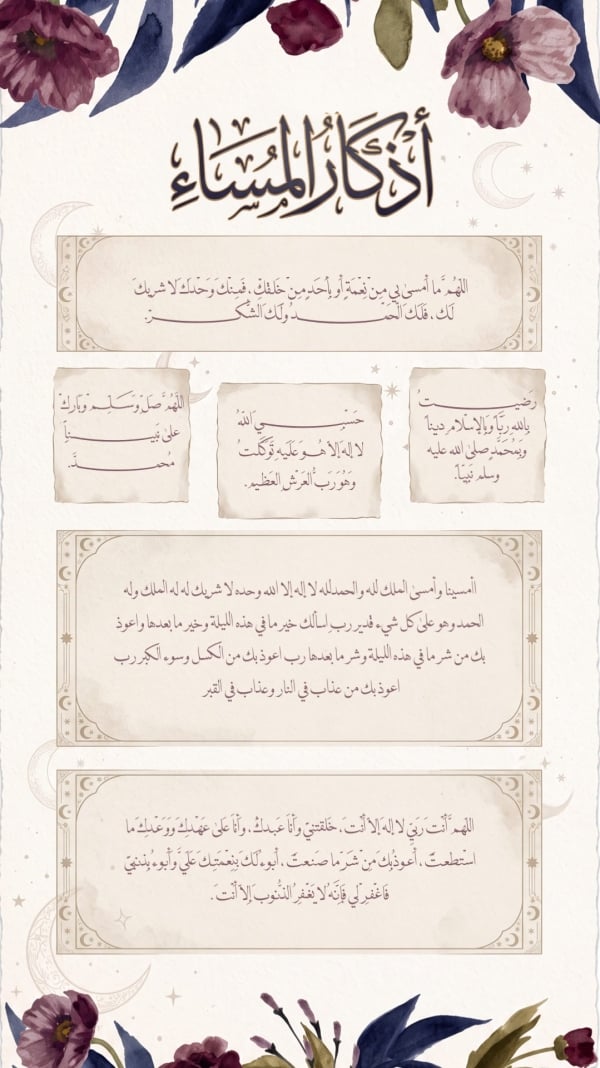 أَذْكَارُ المَسَاءِ
اللَّهُمَّ مَا أَمْسَىٰ بِي مِنْ نِعْمَةٍ أَوْ بِأَحَدٍ مِنْ خَلْقِكَ، فَمِنْكَ وَحْدَكَ لَا شَرِيكَ
لَكَ، فَلَكَ الْحَمْدُ وَلَكَ الشُّكْرُ.
رَضِيتُ
بِاللهِ رَبًّا وَبِالْإِسْلَامِ دِينًا
وَبِمُحَمَّدٍ صلى الله عليه
وسلم نَبِيًّا.
حَسْبِيَ اللهُ
لَا إِلَهَ إِلَّا هُوَ عَلَيْهِ تَوَكَّلْتُ
وَهُوَ رَبُّ الْعَرْشِ الْعَظِيمِ.
اللَّهُمَّ صَلِّ وَسَلِّمْ وَبَارِكْ
عَلَى نَبِيِّنَا
مُحمَّد.
أمسينا وأمسى الملك لله والحمدلله لا إله إلا الله وحده لا شريك له له الملك وله
الحمد وهو على كل شيء قدير رب اسألك خير ما في هذه الليلة وخير ما بعدها واعوذ
بك من شر ما في هذه الليلة وشر ما بعدها رب اعوذ بك من الكسل وسوء الكبر رب
اعوذ بك من عذاب في النار وعذاب في القبر
اللهمَّ أَنْتَ رَبِّي لَا إِلَهَ إِلَّا أَنْتَ، خَلَقْتَنِي وَأَنَا عَبْدُكَ، وَأَنَا عَلَى عَهْدِكَ وَوَعْدِكَ مَا
اسْتَطَعْتُ، أَعُوذُ بِكَ مِنْ شَرِّ مَا صَنَعْتُ، أَبُوءُ لَكَ بِنِعْمَتِكَ عَلَيَّ وَأَبُوءُ بِذَنْبِي
فَاغْفِرْ لِي فَإِنَّهُ لَا يَغْفِرُ الذُّنُوبَ إِلَّا أَنْتَ.